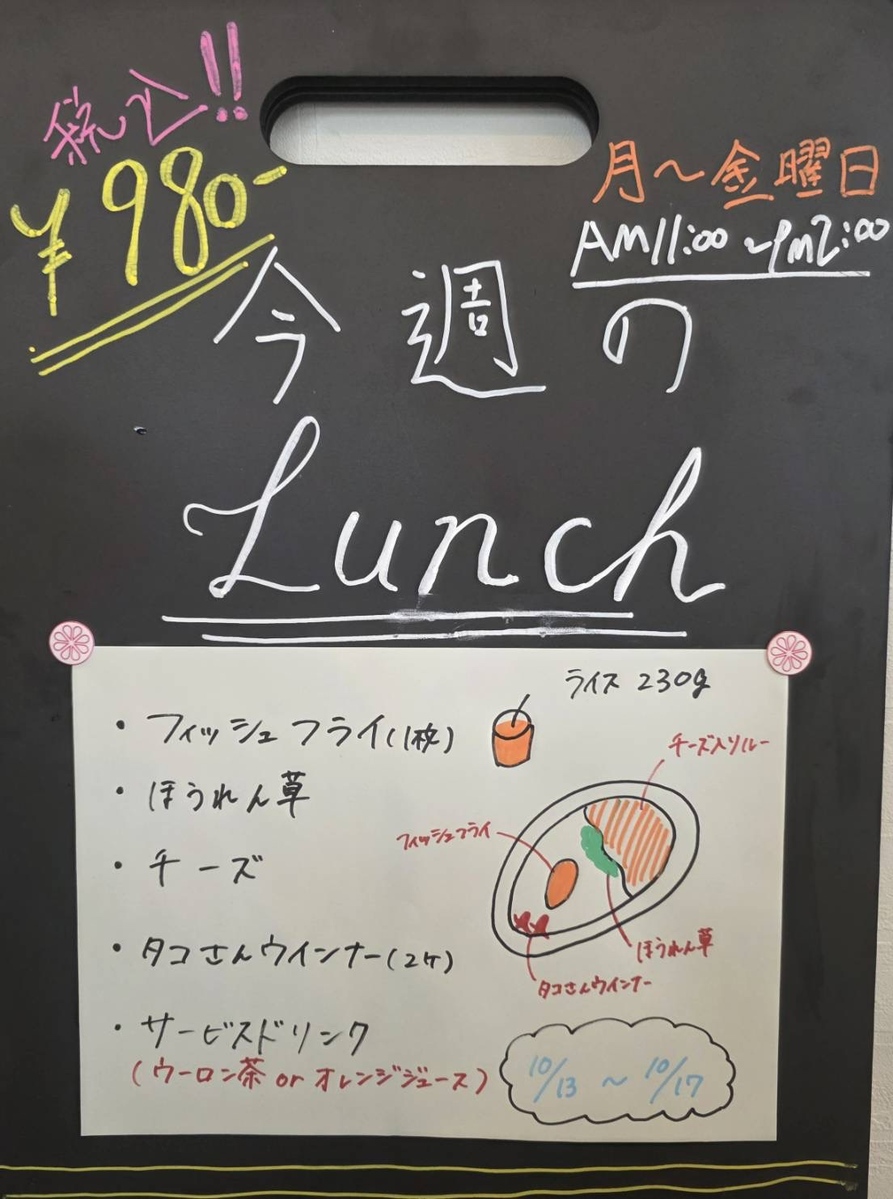 税込!!
¥980-
月～金曜日
AM11:00～PM2:00
今週の
Lunch
ライス 230g
・フィッシュフライ(1枚)
・ほうれん草
・チーズ
・タコさんウインナー(2ケ)
・サービスドリンク
(ウーロン茶 or オレンジジュース)
チーズ入りルー
フィッシュフライ
ほうれん草
タコさんウインナー
10/13 ～ 10/17